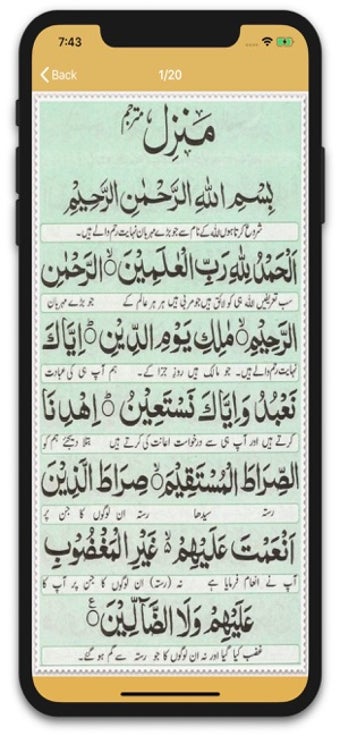 7:43
Back
1/20
مَنزِل مترجم
بِسْمِ اللهِ الرَّحْمٰنِ الرَّحِيْمِ
شروع کرتا ہوں اللہ کے نام سے جو بڑے مہربان نہایت رحم والے ہیں۔
اَلْحَمْدُ لِلّٰهِ رَبِّ الْعٰلَمِيْنَ ۙ الرَّحْمٰنِ
سب تعریفیں اللہ ہی کو لائق ہیں جو مربی ہیں ہر ہر عالم کے جو بڑے مہربان
الرَّحِيْمِ ۙ مٰلِكِ يَوْمِ الدِّيْنِ ؕ اِيَّاكَ
نہایت رحم والے ہیں۔ جو مالک ہیں روزِ جزا کے۔ ہم آپ ہی کی عبادت
نَعْبُدُ وَاِيَّاكَ نَسْتَعِيْنُ ؕ اِهْدِنَا
کرتے ہیں اور آپ ہی سے درخواست اعانت کی کرتے ہیں بتلا دیجئے ہم کو
الصِّرَاطَ الْمُسْتَقِيْمَ ۙ صِرَاطَ الَّذِيْنَ
رستہ سیدھا رستہ ان لوگوں کا جن پر
اَنْعَمْتَ عَلَيْهِمْ ۙ غَيْرِ الْمَغْضُوْبِ
آپ نے انعام فرمایا ہے نہ (رستہ) ان لوگوں کا جن پر آپ کا
عَلَيْهِمْ وَلَا الضَّآلِّيْنَ ع
غضب کیا گیا اور نہ ان لوگوں کا جو رستہ سے گم ہو گئے۔